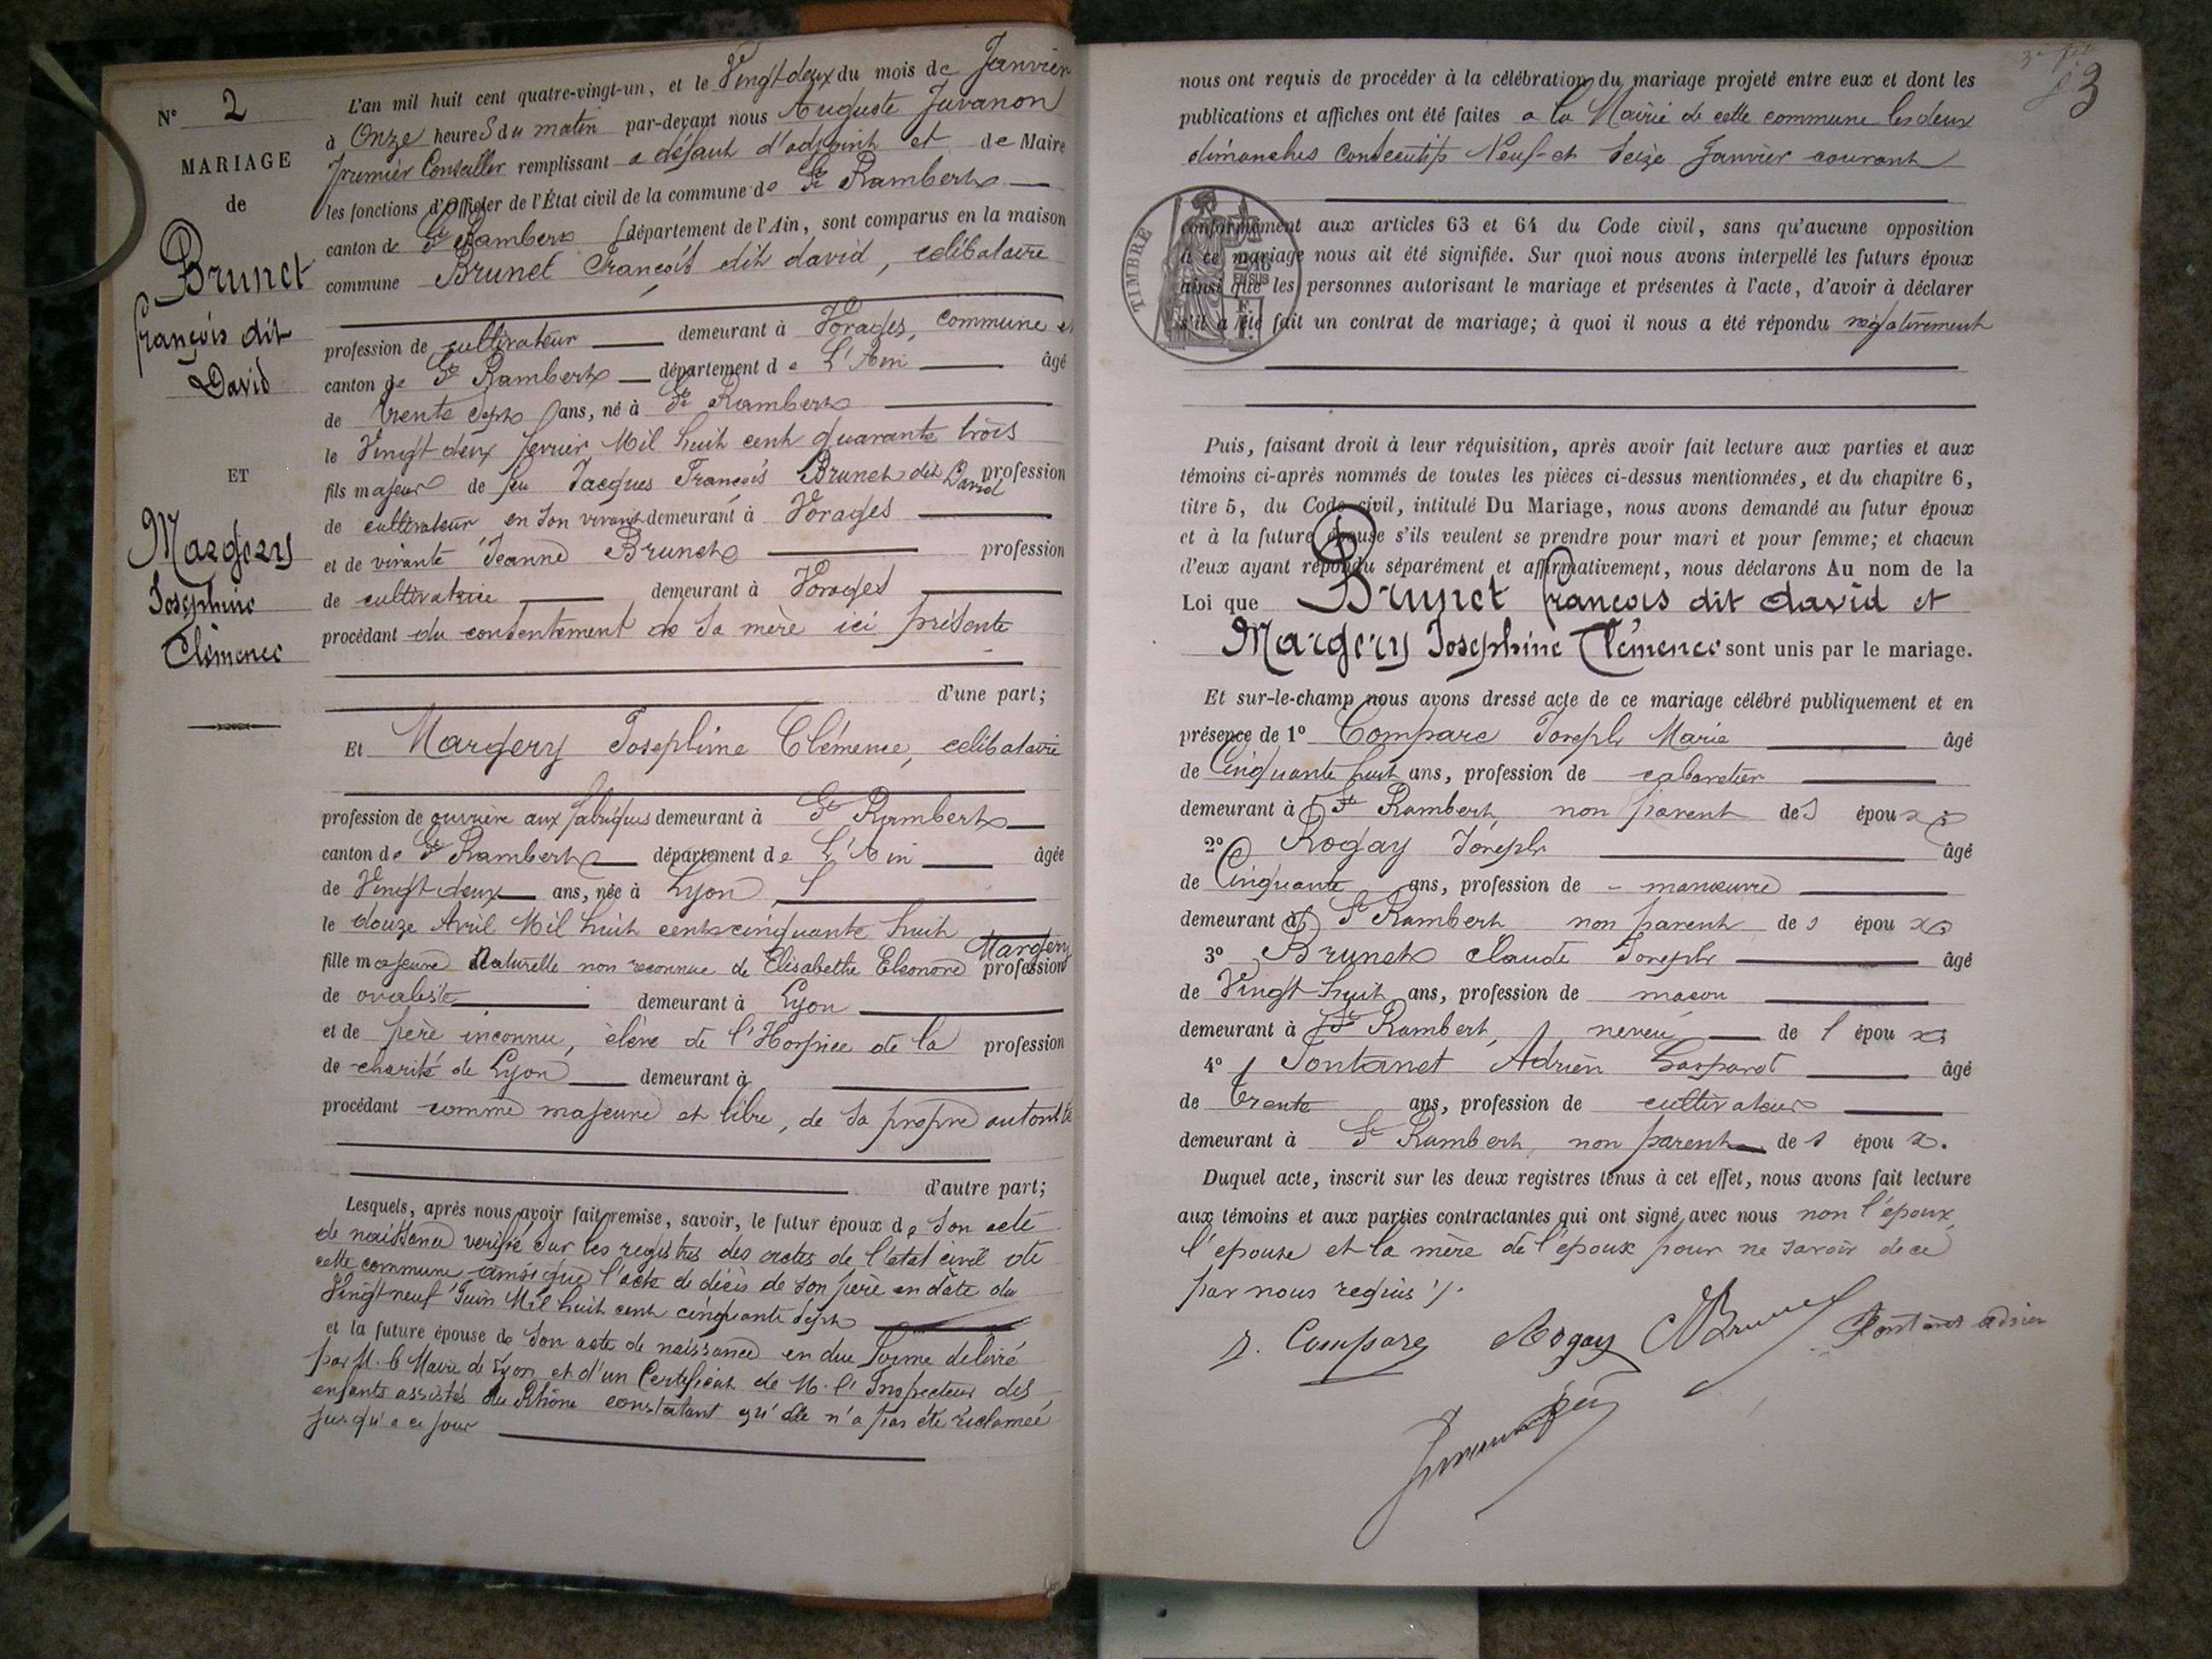 N° 2
MARIAGE
de
Brunet
françois dit
David
ET
Margery
Josephine
Clémence
L'an mil huit cent quatre-vingt-un, et le Vingt deux du mois de Janvier
à Onze heures du matin par-devant nous Auguste Juvanon
premier Conseiller remplissant a défaut d'adjoint et de Maire
les fonctions d'Officier de l'État civil de la commune de St Rambert
canton de St Rambert (département de l'Ain, sont comparus en la maison
commune Brunet François dit david, celibataire
profession de cultivateur demeurant à Vorages, commune et
canton de St Rambert département de L'Ain âgé
de trente sept ans, né à St Rambert
le Vingt deux fevrier Mil huit cent quarante trois
fils majeur de feu Jacques François Brunet dit David profession
de cultivateur en son vivant demeurant à Vorages
et de vivante Jeanne Brunet profession
de cultivatrice demeurant à Vorages
procédant du consentement de sa mère ici présente
d'une part;
Et Margery Josephine Clémence, celibataire
profession de ouvrière aux fabriques demeurant à St Rambert
canton de St Rambert département de L'Ain âgée
de Vingt deux ans, née à Lyon
le douze Avril Mil huit cent cinquante huit
fille majeure Naturelle non reconnue de Elisabethe Eleonore Margery profession
de ovaliste demeurant à Lyon
et de père inconnu, élève de l'Hospice de la profession
de charité de Lyon demeurant à
procédant comme majeure et libre, de sa propre autorité
d'autre part;
Lesquels, après nous avoir fait remise, savoir, le futur époux de Son acte
de naissance verifié sur les registres des actes de l'etat civil de
cette commune ainsi que l'acte de décès de son père en date du
Vingt neuf Juin Mil huit cent cinquante sept
et la future épouse de Son acte de naissance en due forme delivré
par M. le Maire de Lyon et d'un Certificat de M. l'Inspecteur des
enfants assistés du Rhône constatant qu'elle n'a pas été réclamée
jusqu'a ce jour
3
nous ont requis de procéder à la célébration du mariage projeté entre eux et dont les
publications et affiches ont été faites a la Mairie de cette commune les deux
dimanches consecutifs Neuf et Seize Janvier courant
TIMBRE
conformément aux articles 63 et 64 du Code civil, sans qu'aucune opposition
à ce mariage nous ait été signifiée. Sur quoi nous avons interpellé les futurs époux
ainsi que les personnes autorisant le mariage et présentes à l'acte, d'avoir à déclarer
s'il a été fait un contrat de mariage; à quoi il nous a été répondu négativement
Puis, faisant droit à leur réquisition, après avoir fait lecture aux parties et aux
témoins ci-après nommés de toutes les pièces ci-dessus mentionnées, et du chapitre 6,
titre 5, du Code civil, intitulé Du Mariage, nous avons demandé au futur époux
et à la future épouse s'ils veulent se prendre pour mari et pour femme; et chacun
d'eux ayant répondu séparément et affirmativement, nous déclarons Au nom de la
Loi que Brunet françois dit david et
Margery Josephine Clémence sont unis par le mariage.
Et sur-le-champ nous avons dressé acte de ce mariage célébré publiquement et en
présence de 1° Compare Joseph Marie âgé
de Cinquante huit ans, profession de cabaretier
demeurant à St Rambert, non parent des époux
2° Rogay Joseph âgé
de Cinquante ans, profession de manœuvre
demeurant à St Rambert non parent des époux
3° Brunet claude Joseph âgé
de Vingt huit ans, profession de maçon
demeurant à St Rambert, neveu de l'époux
4° Fontanet Adrien Gaspard âgé
de trente ans, profession de cultivateur
demeurant à St Rambert, non parent des époux.
Duquel acte, inscrit sur les deux registres tenus à cet effet, nous avons fait lecture
aux témoins et aux parties contractantes qui ont signé avec nous non l'époux,
l'epouse et la mère de l'époux pour ne savoir de ce
par nous requis
J. Compare Rogay Brunet Fontanet adrien